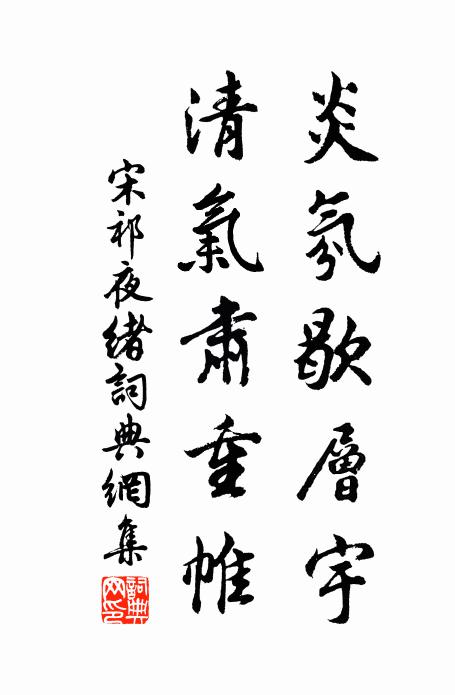 炎氛歇層宇
清氣肅重帷
宋祁夜緒詞典網集
詞典网印